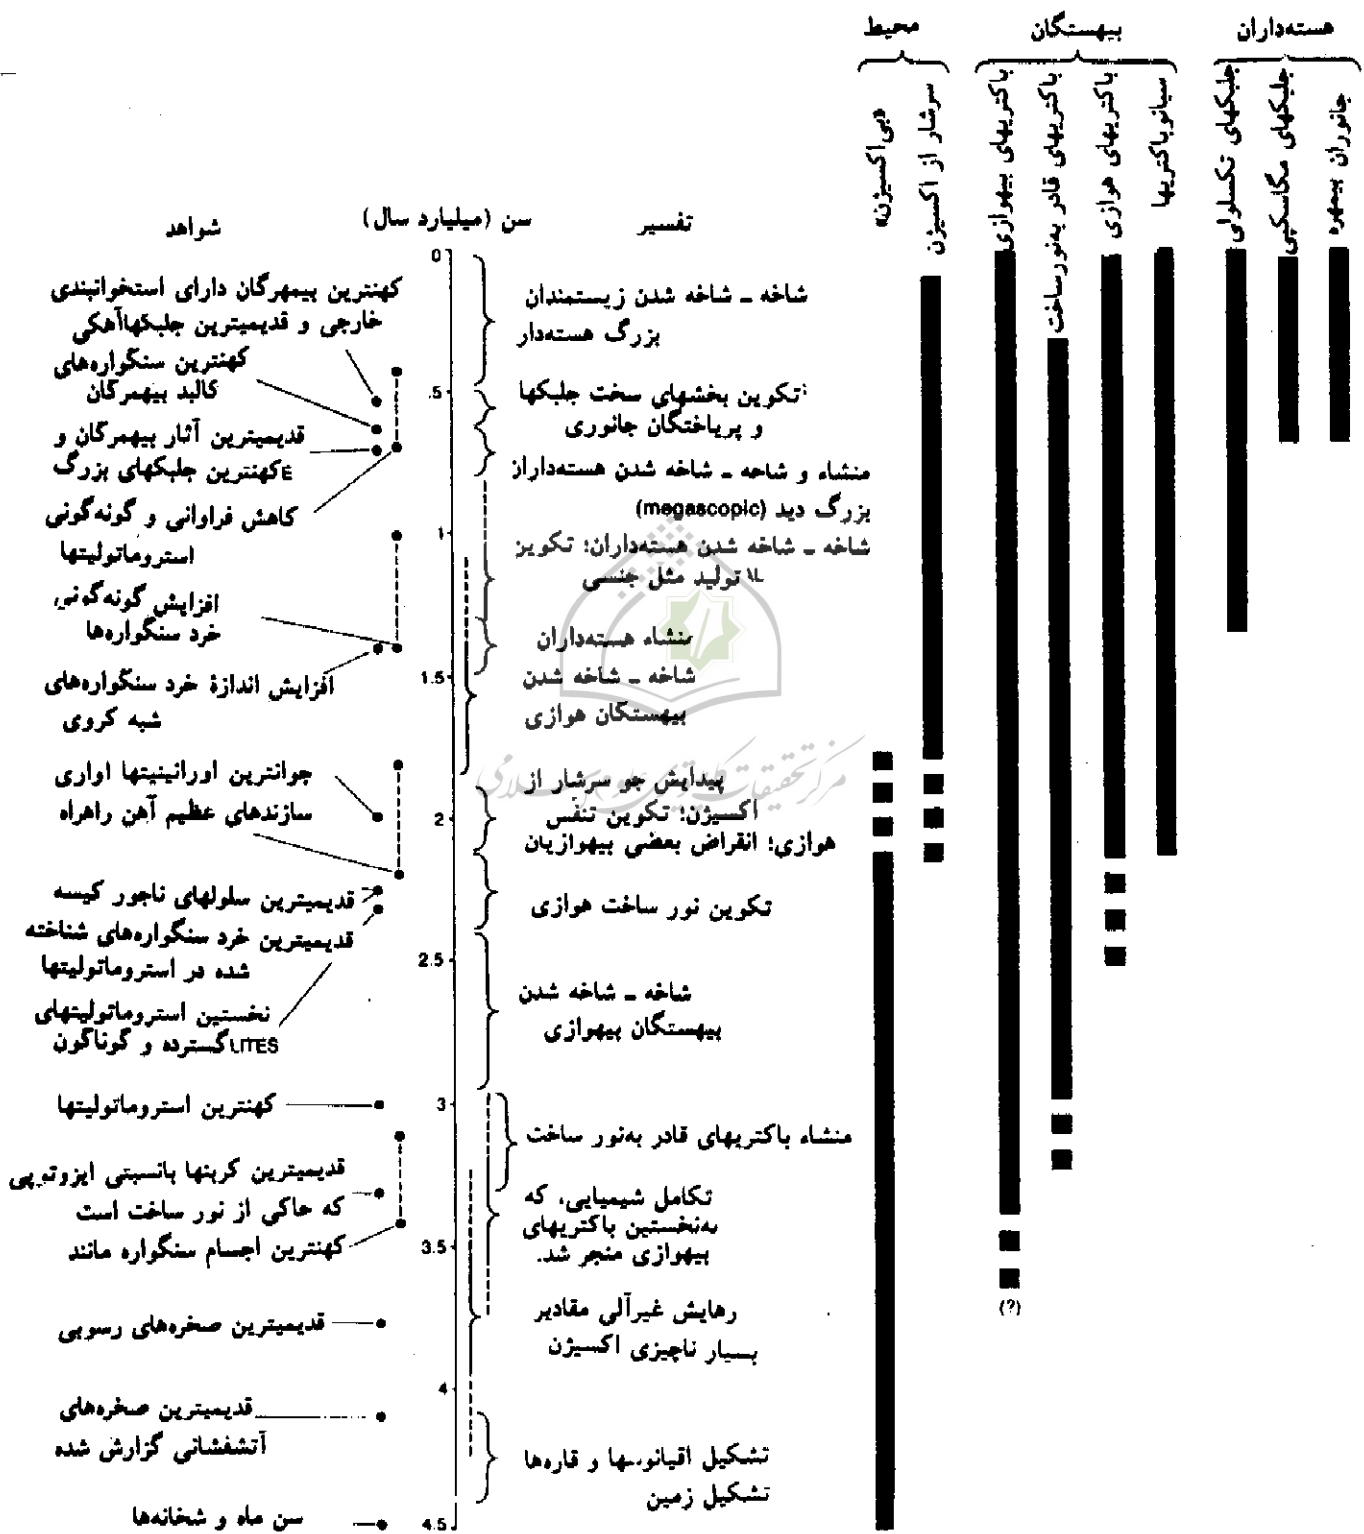 محیط
بیهستگان
هسته‌داران
«بی‌اکسیژن»
سرشار از اکسیژن
باکتریهای بیهوازی
باکتریهای قادر به‌نورساخت
باکتریهای هوازی
سیانوباکتریها
جلبکهای تکسلولی
جلبکهای مگاسکپی
جانوران بیمهره
شواهد
سن (میلیارد سال)
تفسیر
0
.5
1
1.5
2
2.5
3
3.5
4
4.5
کهنترین بیمهرگان دارای استخوانبندی
خارجی و قدیمیترین جلبکهاآهکی
کهنترین سنگواره‌های
کالبد بیهمرگان
قدیمیترین آثار بیهمرگان و
Eکهنترین جلبکهای بزرگ
کاهش فراوانی و گونه‌گونی
استروماتولیتها
افزایش گونه‌گونی
خرد سنگواره‌ها
افزایش اندازهٔ خرد سنگواره‌های
شبه کروی
جوانترین اورانینیتها اواری
سازندهای عظیم آهن راهراه
قدیمیترین سلولهای ناجور کیسه
قدیمیترین خرد سنگواره‌های شناخته
شده در استروماتولیتها
نخستین استروماتولیتهای
LITESگسترده و گوناگون
کهنترین استروماتولیتها
قدیمیترین کربنها بانسبتی ایزوتوپی
که حاکی از نور ساخت است
کهنترین اجسام سنگواره مانند
قدیمیترین صخره‌های رسوبی
قدیمیترین صخره‌های
آتشفشانی گزارش شده
سن ماه و شخانه‌ها
شاخه ـ شاخه شدن زیستمندان
بزرگ هسته‌دار
تکوین بخشهای سخت جلبکها
و پریاختگان جانوری
منشاء و شاخه ـ شاخه شدن هسته‌داران
بزرگ دید (megascopic)
شاخه ـ شاخه شدن هسته‌داران؛ تکوین
تولید مثل جنسی
منشاء هسته‌داران
شاخه ـ شاخه شدن
بیهستگان هوازی
پیدایش جو سرشار از
اکسیژن؛ تکوین تنفس
هوازی؛ انقراض بعضی بیهوازیان
تکوین نور ساخت هوازی
شاخه ـ شاخه شدن
بیهستگان بیهوازی
منشاء باکتریهای قادر به‌نور ساخت
تکامل شیمیایی، که
به‌نخستین باکتریهای
بیهوازی منجر شد.
رهایش غیرآلی مقادیر
بسیار ناچیزی اکسیژن
تشکیل اقیانوسها و قاره‌ها
تشکیل زمین
(?)